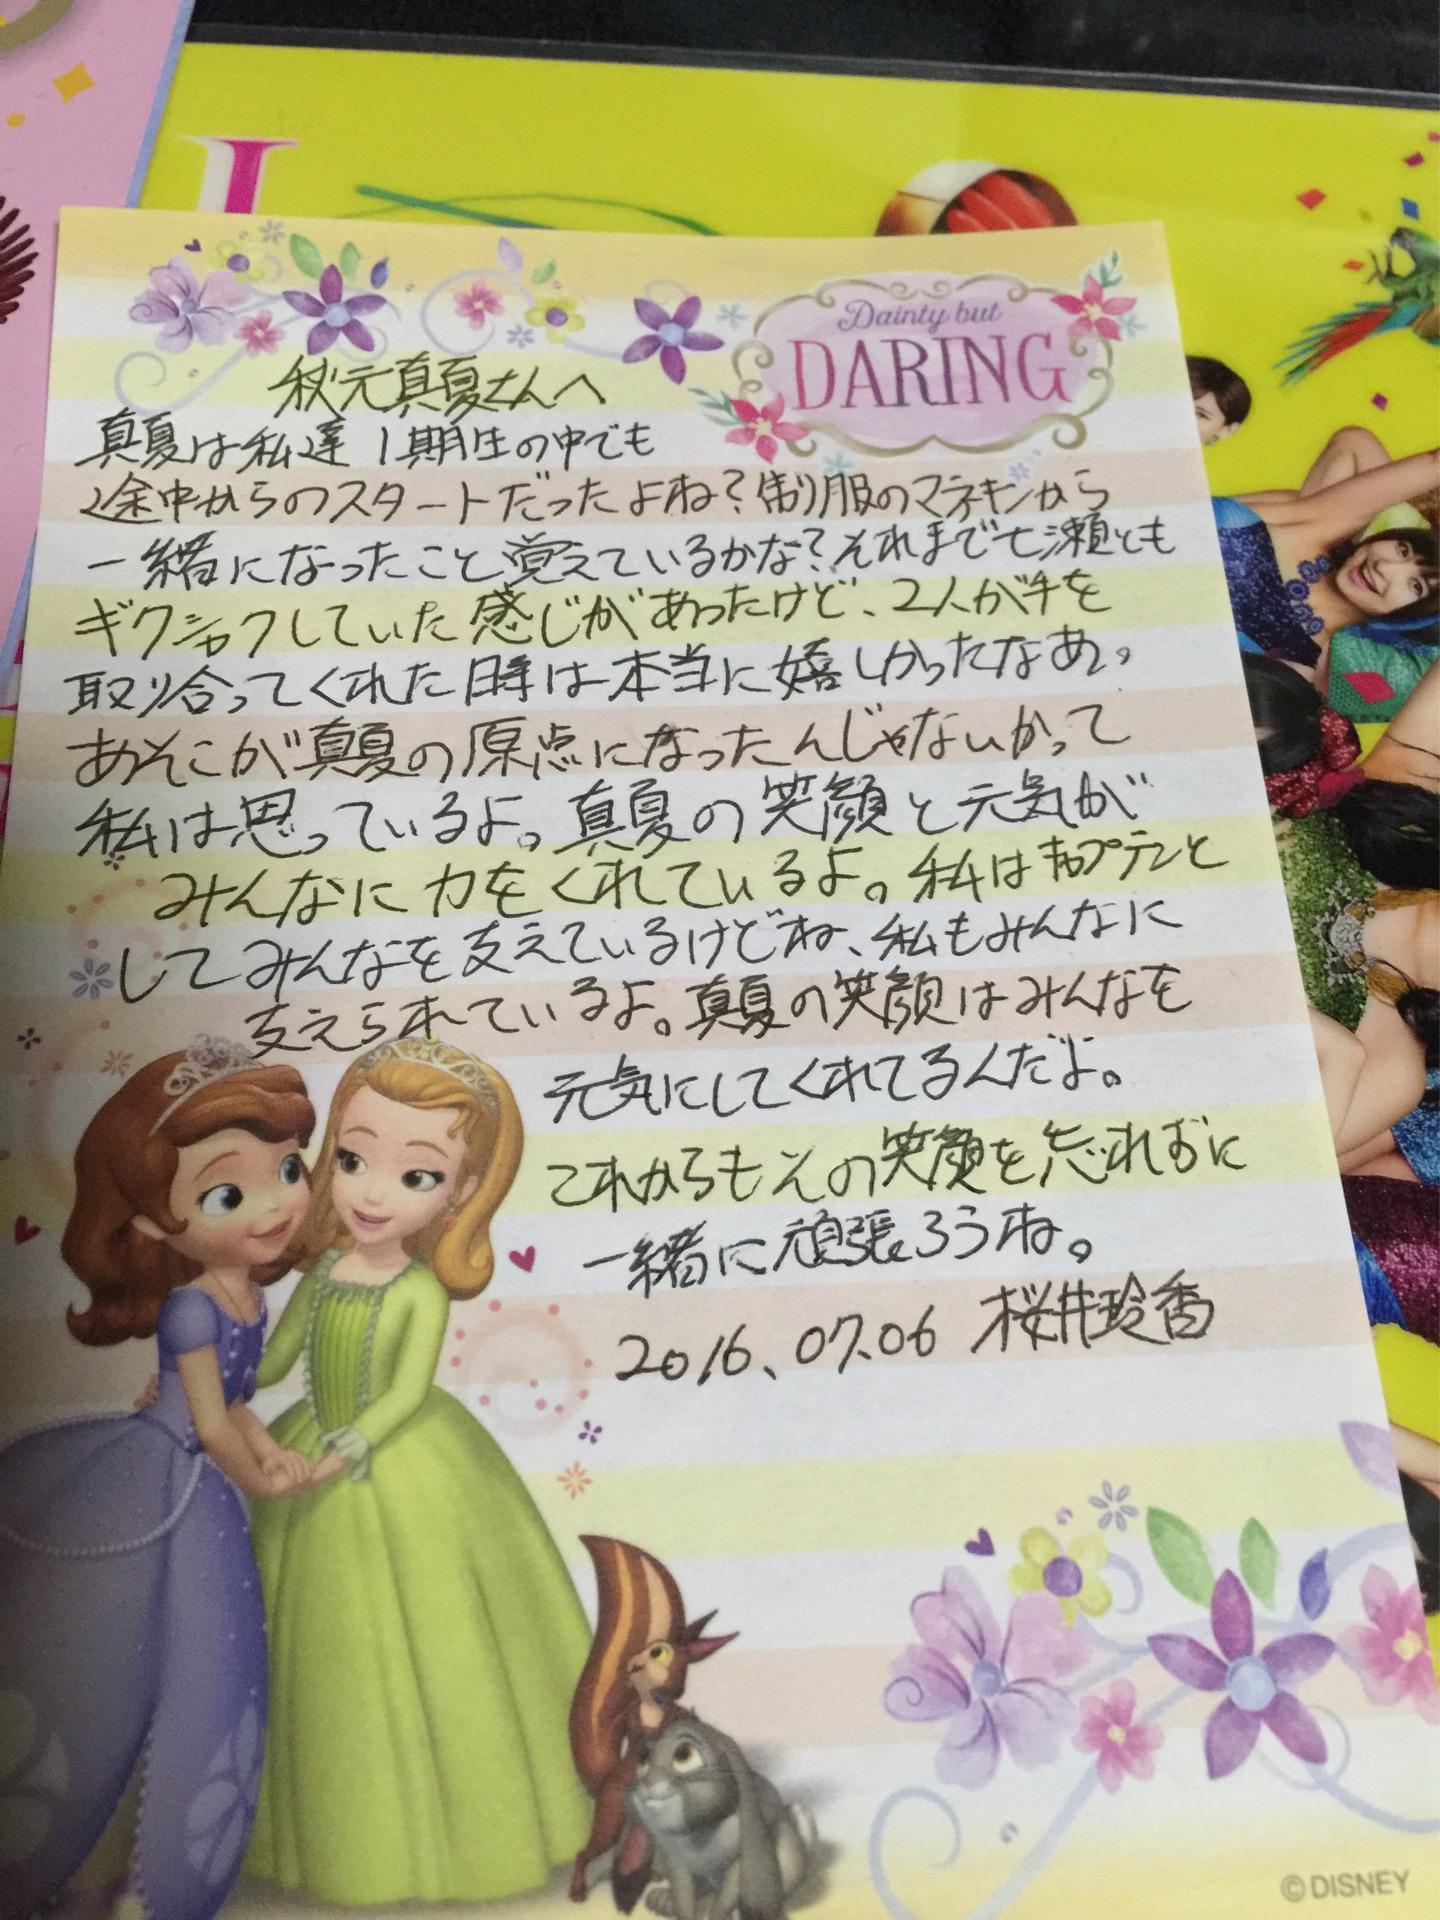 Dainty but
DARING
秋元真夏さんへ
真夏は私達1期生の中でも
途中からのスタートだったよね?制服のマネキンから
一緒になったこと覚えているかな?それまで七瀬とも
ギクシャクしていた感じがあったけど、2人が手を
取り合ってくれた時は本当に嬉しかったなあ。
あそこが真夏の原点になったんじゃないかって
私は思っているよ。真夏の笑顔と元気が
みんなに力をくれているよ。私はキャプテンと
してみんなを支えているけどね、私もみんなに
支えられているよ。真夏の笑顔はみんなを
元気にしてくれてるんだよ。
これからもその笑顔を忘れずに
一緒に頑張ろうね。
2016.07.06 桜井玲香
©DISNEY